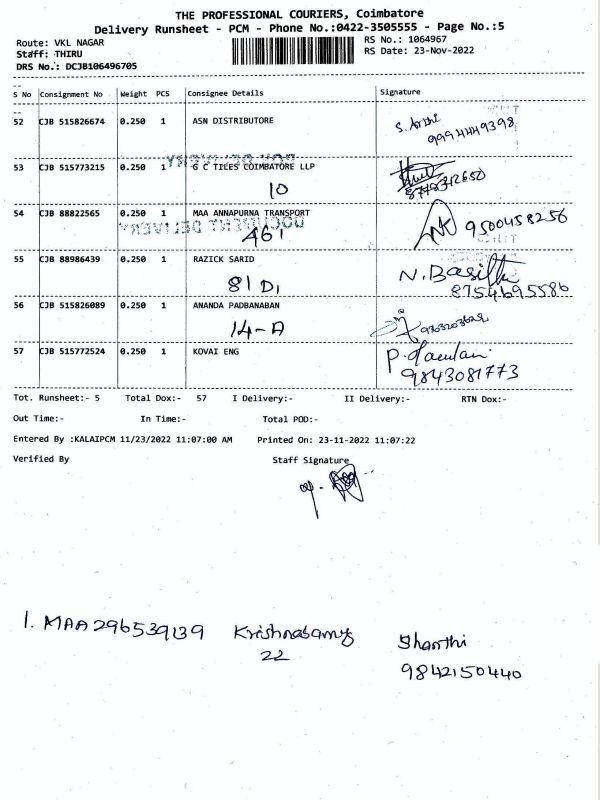 THE PROFESSIONAL COURIERS, Coimbatore
Delivery Runsheet - PCM - Phone No.:0422-3505555 - Page No.:5
Route: VKL NAGAR
RS No.: 1064967
Staff: THIRU
RS Date: 23-Nov-2022
DRS No.: DCJB106496705
S No Consignment No Weight PCS Consignee Details Signature
52 CJB 515826674 0.250 1 ASN DISTRIBUTORE
S. Arthi
9994449398
53 CJB 515773215 0.250 1 G C TILES COIMBATORE LLP
10
54 CJB 88822565 0.250 1 MAA ANNAPURNA TRANSPORT
DOCUMENT DELIVERY
461
9500458256
55 CJB 88986439 0.250 1 RAZICK SARID
81 D1
N. Basith
8754695586
56 CJB 515826089 0.250 1 ANANDA PADBANABAN
14-A
57 CJB 515772524 0.250 1 KOVAI ENG
9843081773
Tot. Runsheet:- 5 Total Dox:- 57 I Delivery:- II Delivery:- RTN Dox:-
Out Time:- In Time:- Total POD:-
Entered By :KALAIPCM 11/23/2022 11:07:00 AM Printed On: 23-11-2022 11:07:22
Verified By Staff Signature
1. MAA 296539139 Krishnasamy Shanthi
22 9842150440